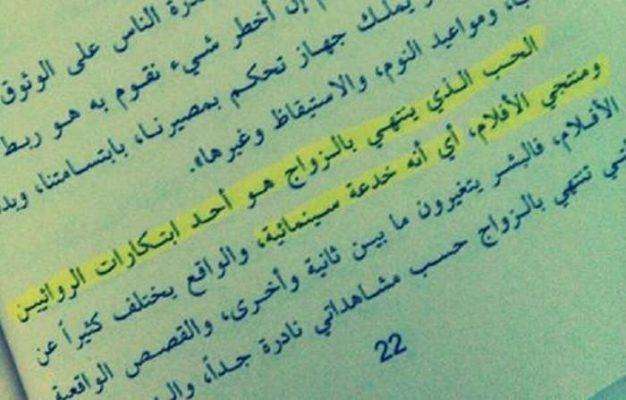 درة الناس على الوثوق
م إن أخطر شيء نقوم به هو ربط
يملك جهاز تحكم بمصيرنا، بابتسامتنا، وبد
ومواعيد النوم، والاستيقاظ وغيرها».
الحب الذي ينتهي بالزواج هو أحد ابتكارات الروائيين
ومنتجي الأفلام، أي أنه خدعة سينمائية، والواقع يختلف كثيراً عن
الأفلام، فالبشر يتغيرون ما بين ثانية وأخرى، والقصص الواقعية
تنتهي بالزواج حسب مشاهداتي نادرة جداً،
22